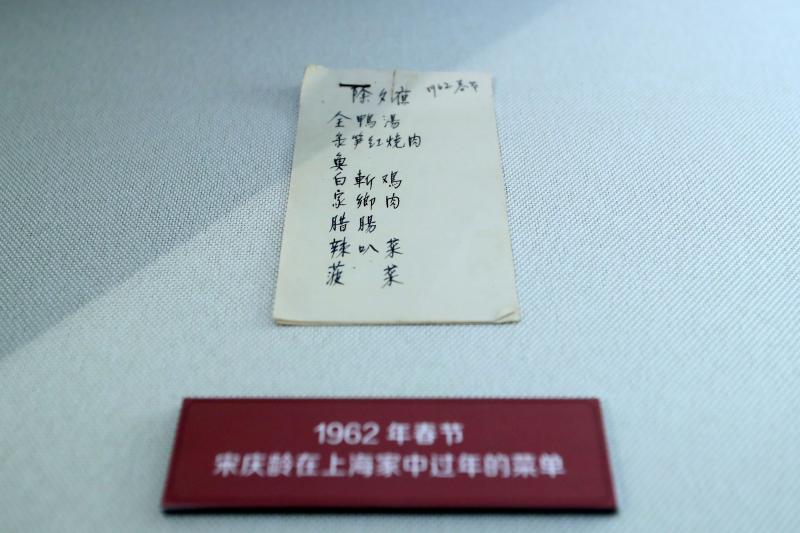 除夕夜 1962春节
全鴨湯
冬笋红燒肉
魚
白斬鸡
家鄉肉
腊腸
辣叭菜
菠菜
1962 年春节
宋庆龄在上海家中过年的菜单